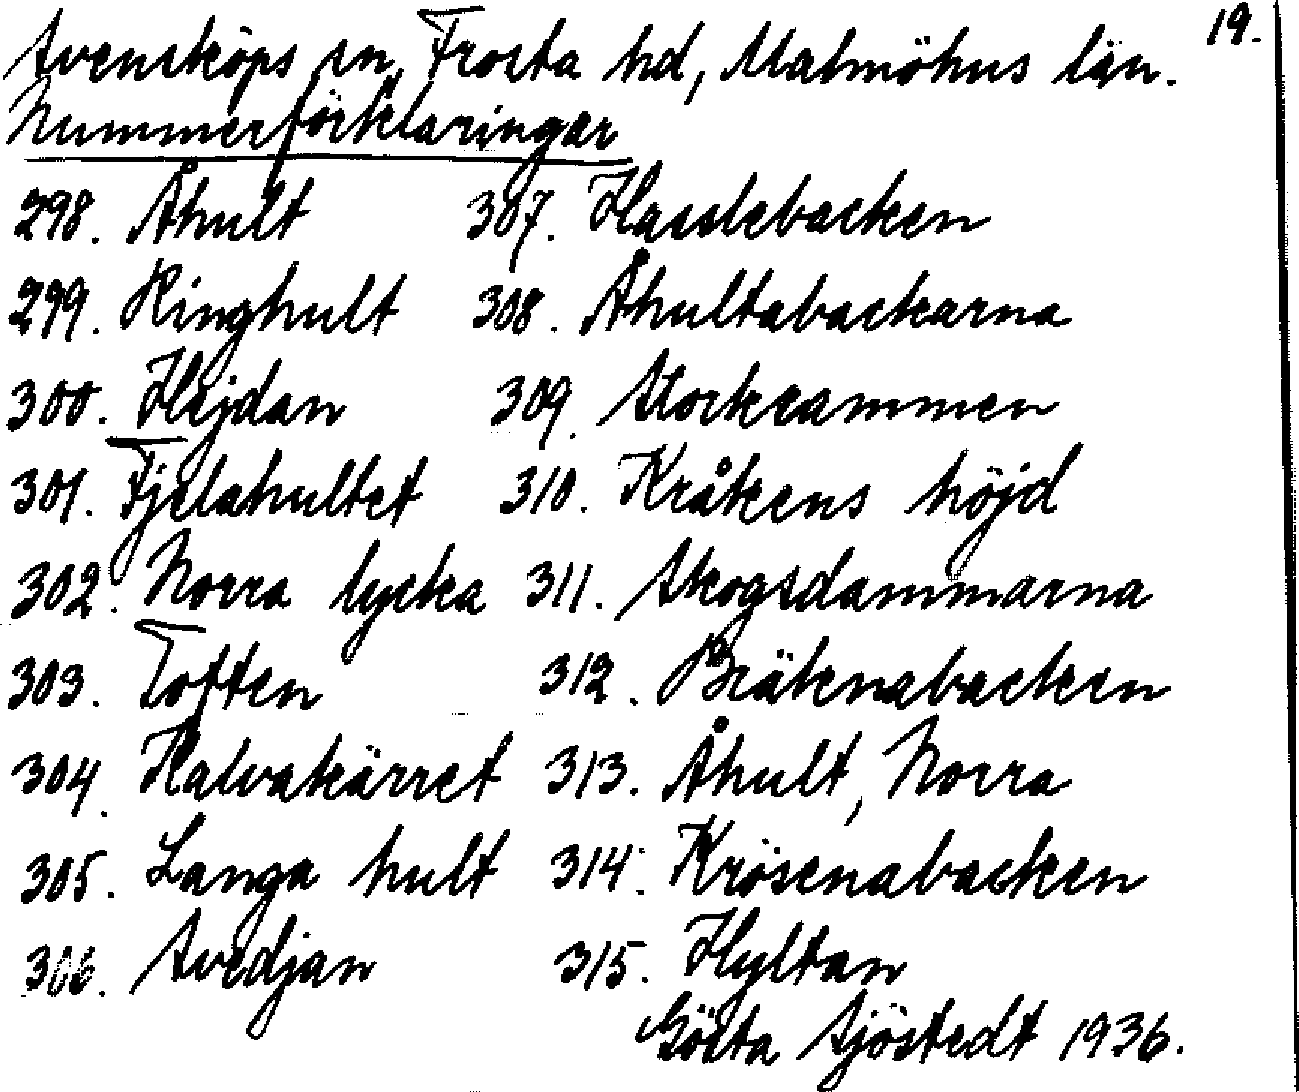 19.
Svensköps sn, Frosta hd, Malmöhus län.
Nummerförklaringar
298. Åhult 307. Hasslebacken
299. Ringhult 308. Åhultabackarna
300. Hejdan 309. Storkeammen
301. Fjelahultet 310. Kråkens höjd
302. Norra lycka 311. Skogsdammarna
303. Toften 312. Bräknabacken
304. Kalvakärret 313. Åhult, Norra
305. Langa hult 314. Krösenabacken
306. Svedjan 315. Hyltan
Gösta Sjöstedt 1936.